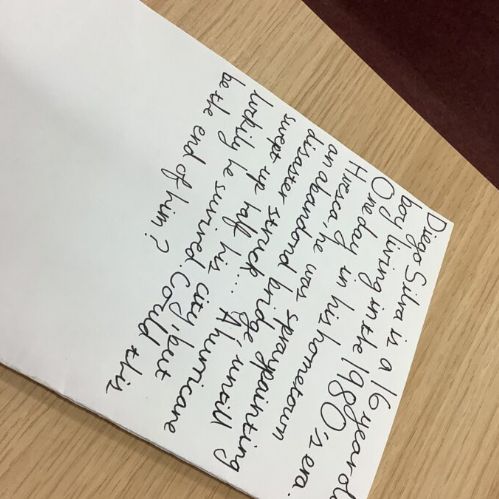 Diego Silva is a 16 year old
boy living in the 1980's era.
One day in his hometown
Huesca, he was spraypainting
an abandond bridge, untill
disaster struck... A hurricane
swept up half his city, but
luckily he survived. Could this
be the end of him?